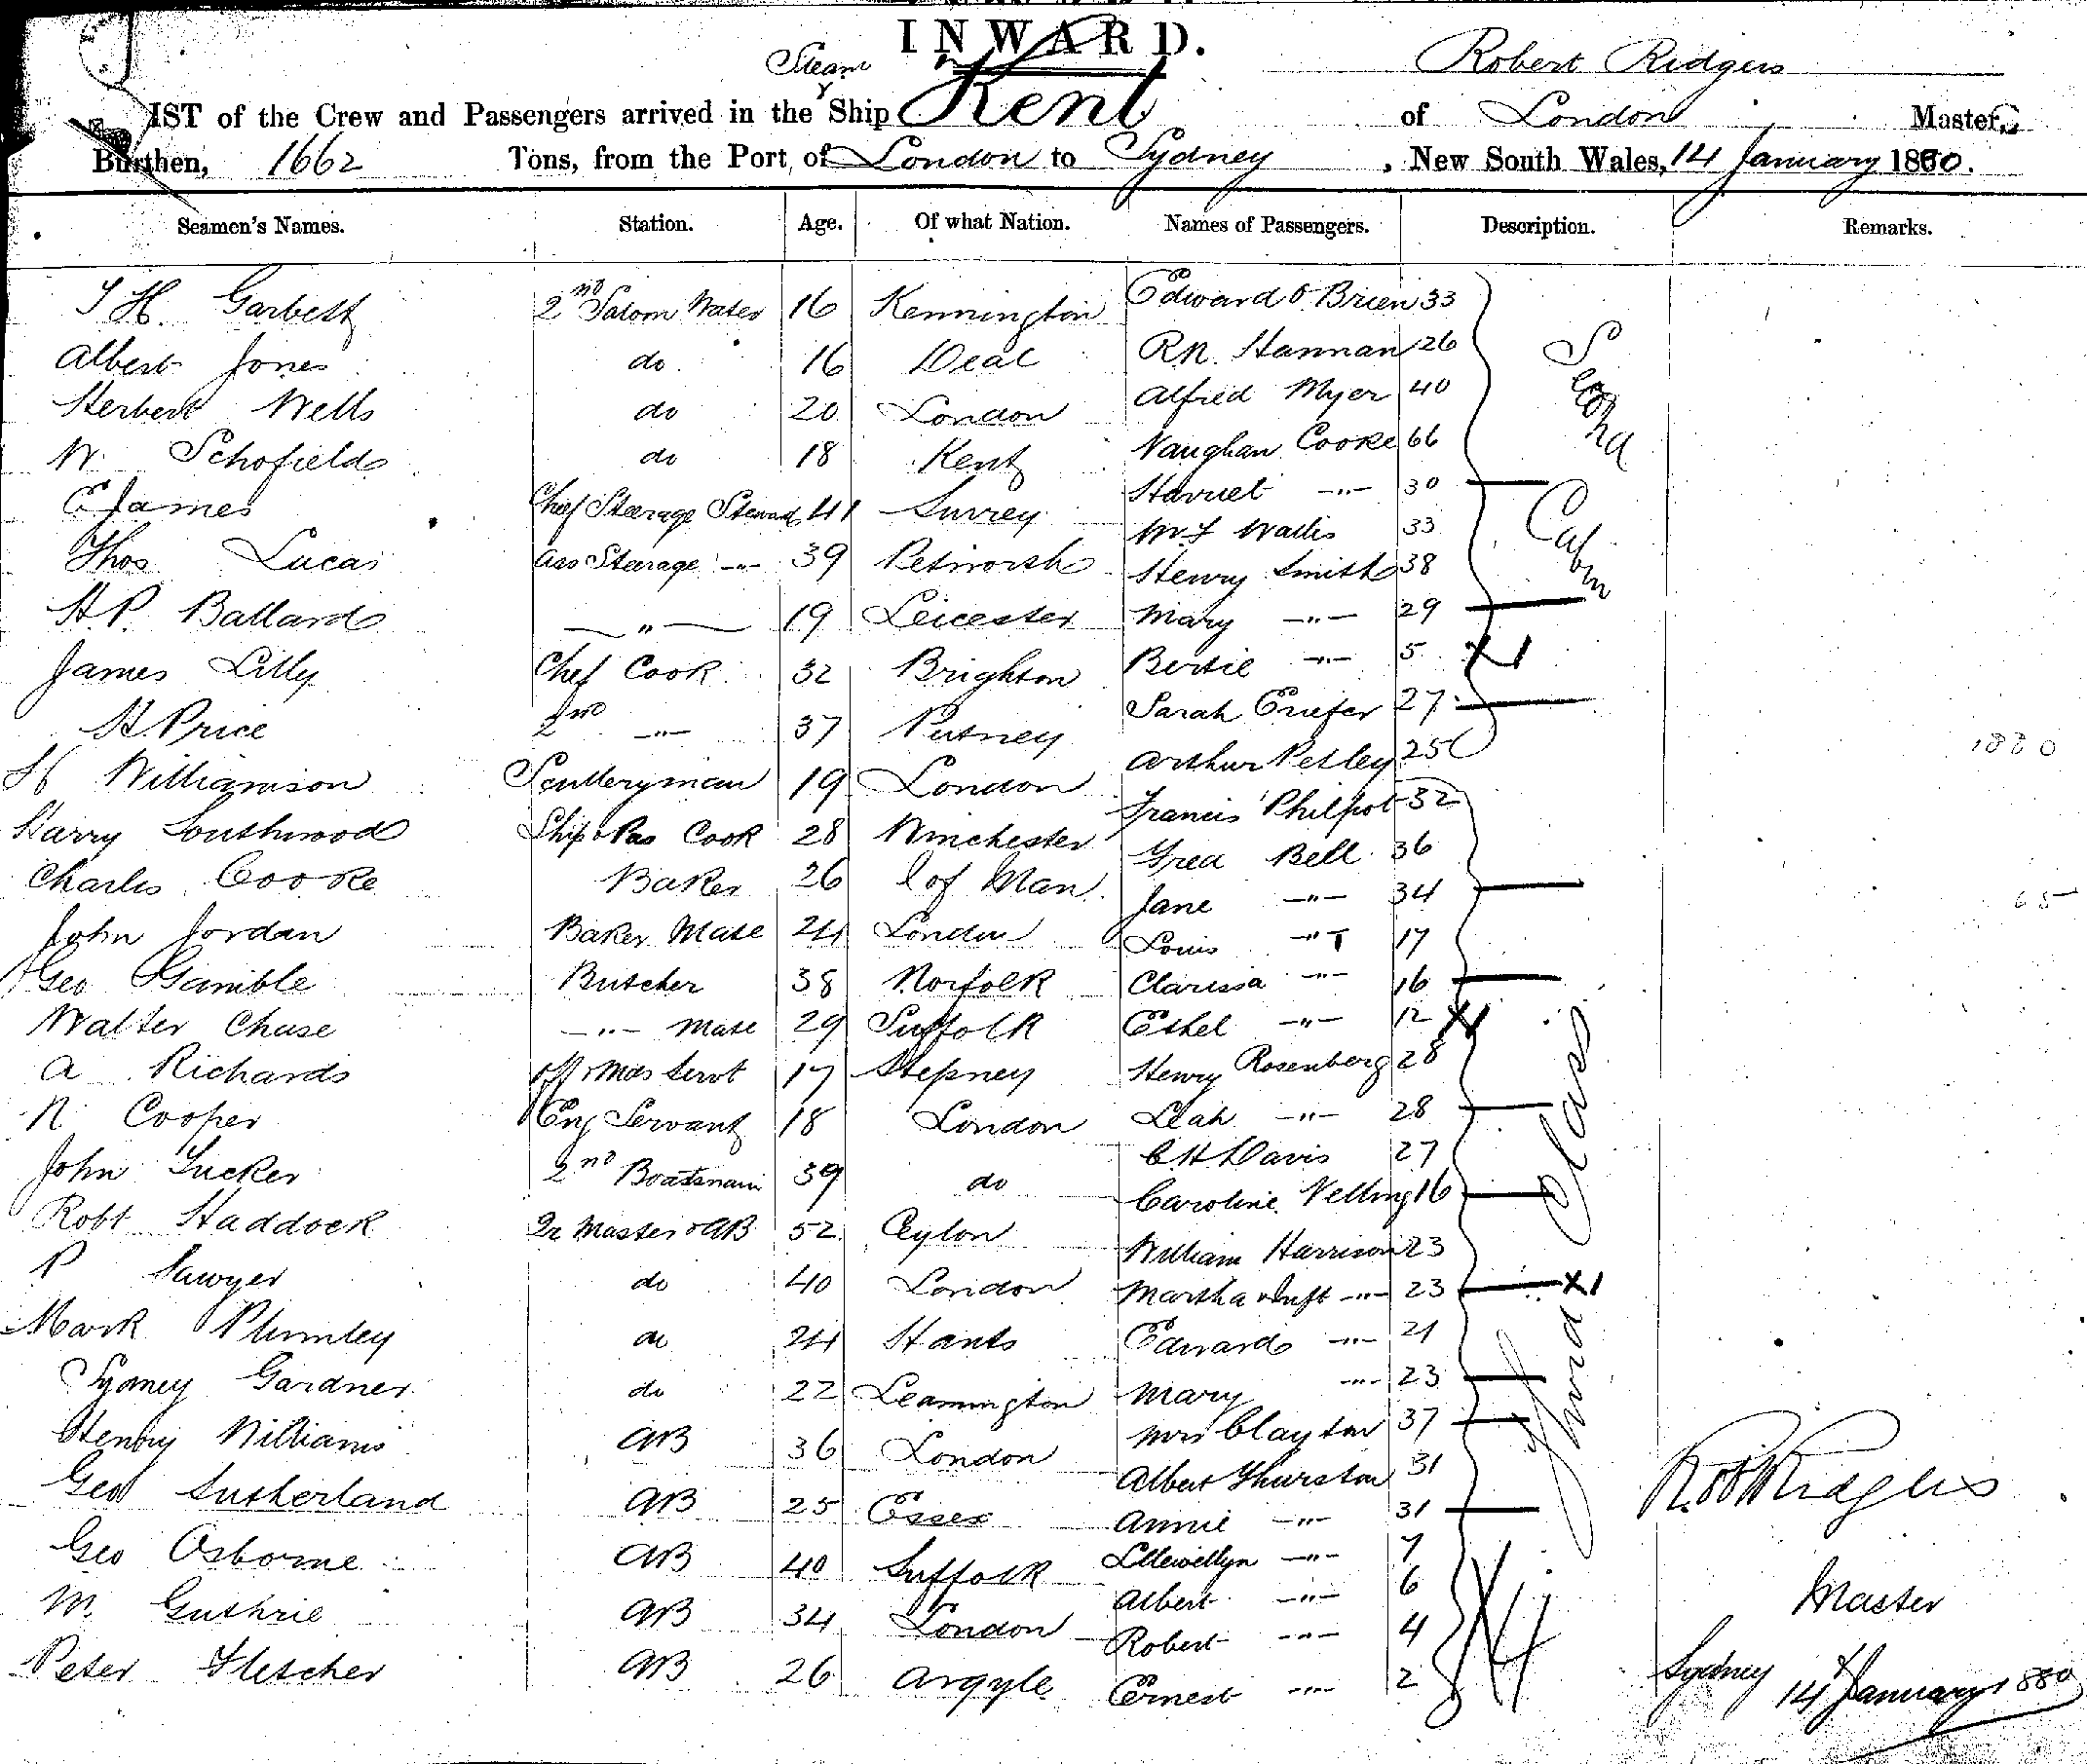 INWARD.
Steam
Robert Ridgers
IST of the Crew and Passengers arrived in the Ship Kent of London Master,
Burthen, 1662 Tons, from the Port of London to Sydney, New South Wales, 14 January 1880.
Seamen's Names. Station. Age. Of what Nation. Names of Passengers. Description. Remarks.
J H. Garbett 2nd Saloon Waiter 16 Kennington Edward O'Brien 33
Albert Jones do 16 Deal R N. Hannan 26
Herbert Wells do 20 London Alfred Myer 40
W. Schofield do 18 Kent Vaughan Cooke 66
Second Cabin
E James Chief Steerage Steward 41 Surrey Harriet -"- 30
W F Wallis 33
Thos Lucas Ass Steerage -"- 39 Petworth Henry Smith 38
H. P. Ballard -"- 19 Leicester Mary -"- 29
James Lilly Chef Cook 32 Brighton Bertie -"- 5 X1
Sarah 27
H Price 2nd -"- 37 Putney Arthur Petley 25
1880
H Williamson Scullery man 19 London Francis Philpot 32
Harry Southwood Ship & Pas Cook 28 Winchester Fred Bell 36
Charles Cooke Baker 26 I of Man Jane -"- 34
65
John Jordan Baker Mate 24 London Louis -"- 17
Geo Gamble Butcher 38 Norfolk Clarissa -"- 16
Walter Chase -"- Mate 29 Suffolk Ethel -"- 12 X1
A Richards Mess Servt 17 Stepney Henry Rosenberg 28
N Cooper Eng Servant 18 London Leah -"- 28
John Tucker 2nd Boatswain 39 do C H Davis 27
Caroline Velling 16
Third Class
Robt Haddock Qr Master & AB 52 Ceylon William Harrison 23
P Sawyer do 40 London Martha & Inft -"- 23 X1
Mark Plumley do 24 Hants Edward -"- 21
Sydney Gardner do 22 Leamington Mary -"- 23
Henry Williams AB 36 London Mrs Clayton 37
Albert Thurston 31
Robt Ridgers
Geo Sutherland AB 25 Essex Annie -"- 31
Geo Osborne AB 40 Suffolk Llewellyn -"- 7
Albert -"- 6
Master
M. Guthrie AB 34 London Robert -"- 4
Peter Fletcher AB 26 Argyle Ernest -"- 2 X4
Sydney 14 January 1880